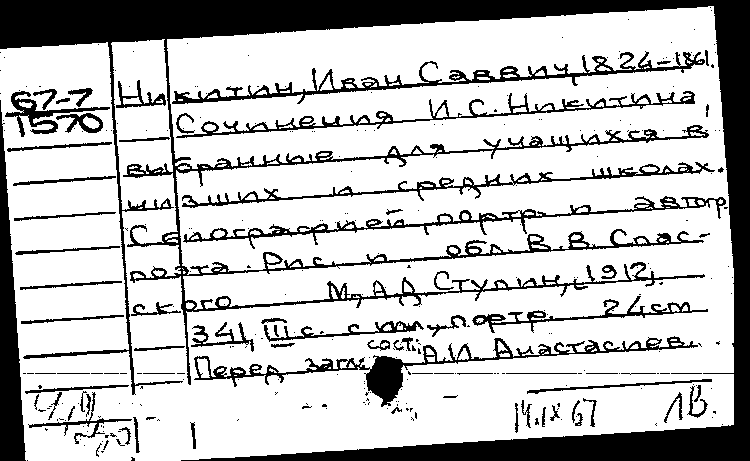 67-7
1570
Никитин, Иван Саввич, 1824-1861.
Сочинения И.С. Никитина,
выбранные для учащихся в
низших и средних школах.
С биографией, портр. и автогр.
поэта. Рис. и обл. В.В. Спас-
ского М., А.Д. Ступин, [1912].
341, III с. с илл., портр. 24 см
Перед загл. сост.: А.И. Анастасиев.
14.IX 67 ЛВ.